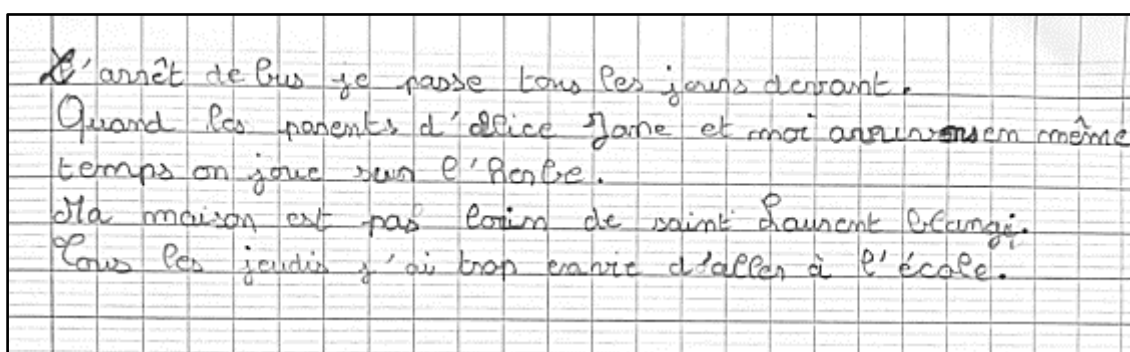 L'arrêt de bus je passe tous les jours devant.
Quand les parents d'Alice Jane et moi en même
temps on joue sur l'herbe.
Ma maison est pas de saint Laurent Blangi.
Tous les jeudis j'ai trop envie d'aller à l'école.